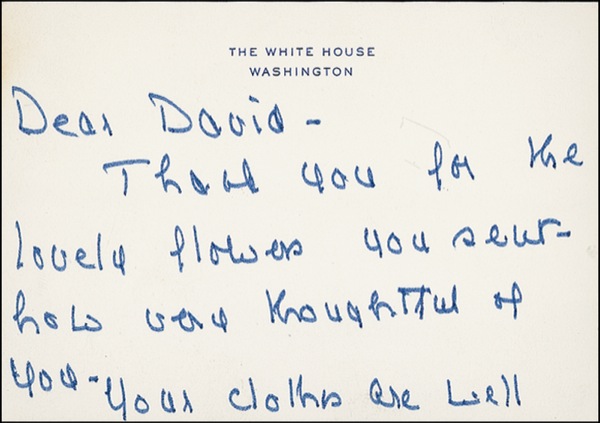 THE WHITE HOUSE
WASHINGTON
Dear David -
Thank you for the
lovely flowers you sent -
how very thoughtful of
you - Your clothes are well